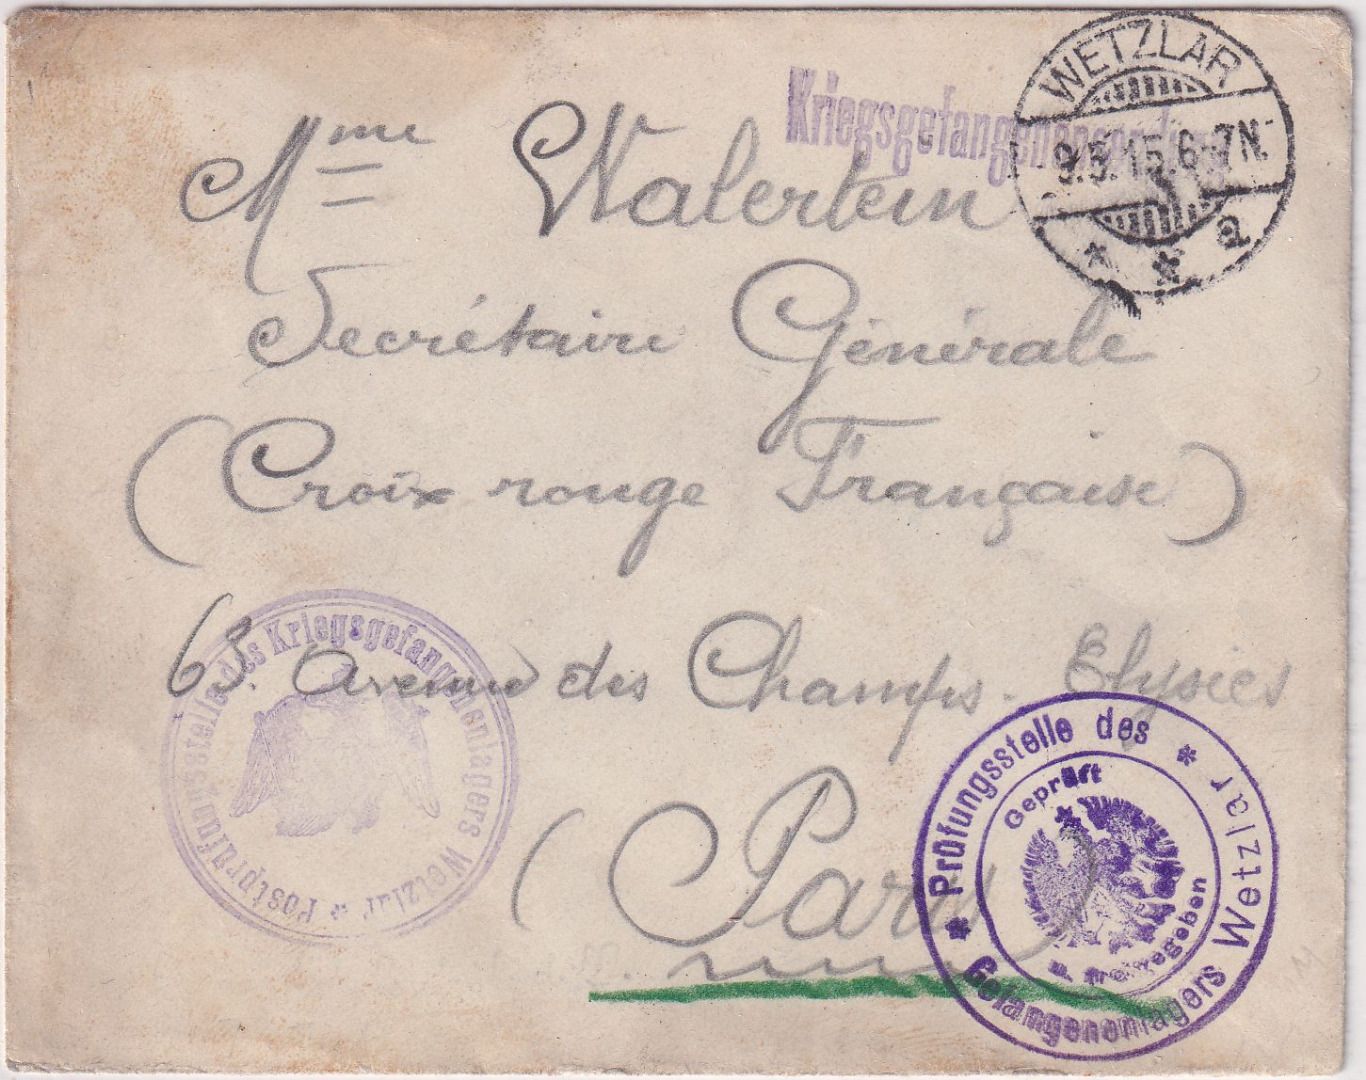 Kriegsgefangenensendung
WETZLAR
9.3.15.6-7N.
* * a
Mme Walertein
Secrétaire Générale
(Croix rouge Française)
63. Avenue des Champs-Elysées
(Paris)
Postprüfungsstelle des Kriegsgefangenenlagers Wetzlar *
* Prüfungsstelle des * Gefangenenlagers Wetzlar
Geprüft
u. freigegeben